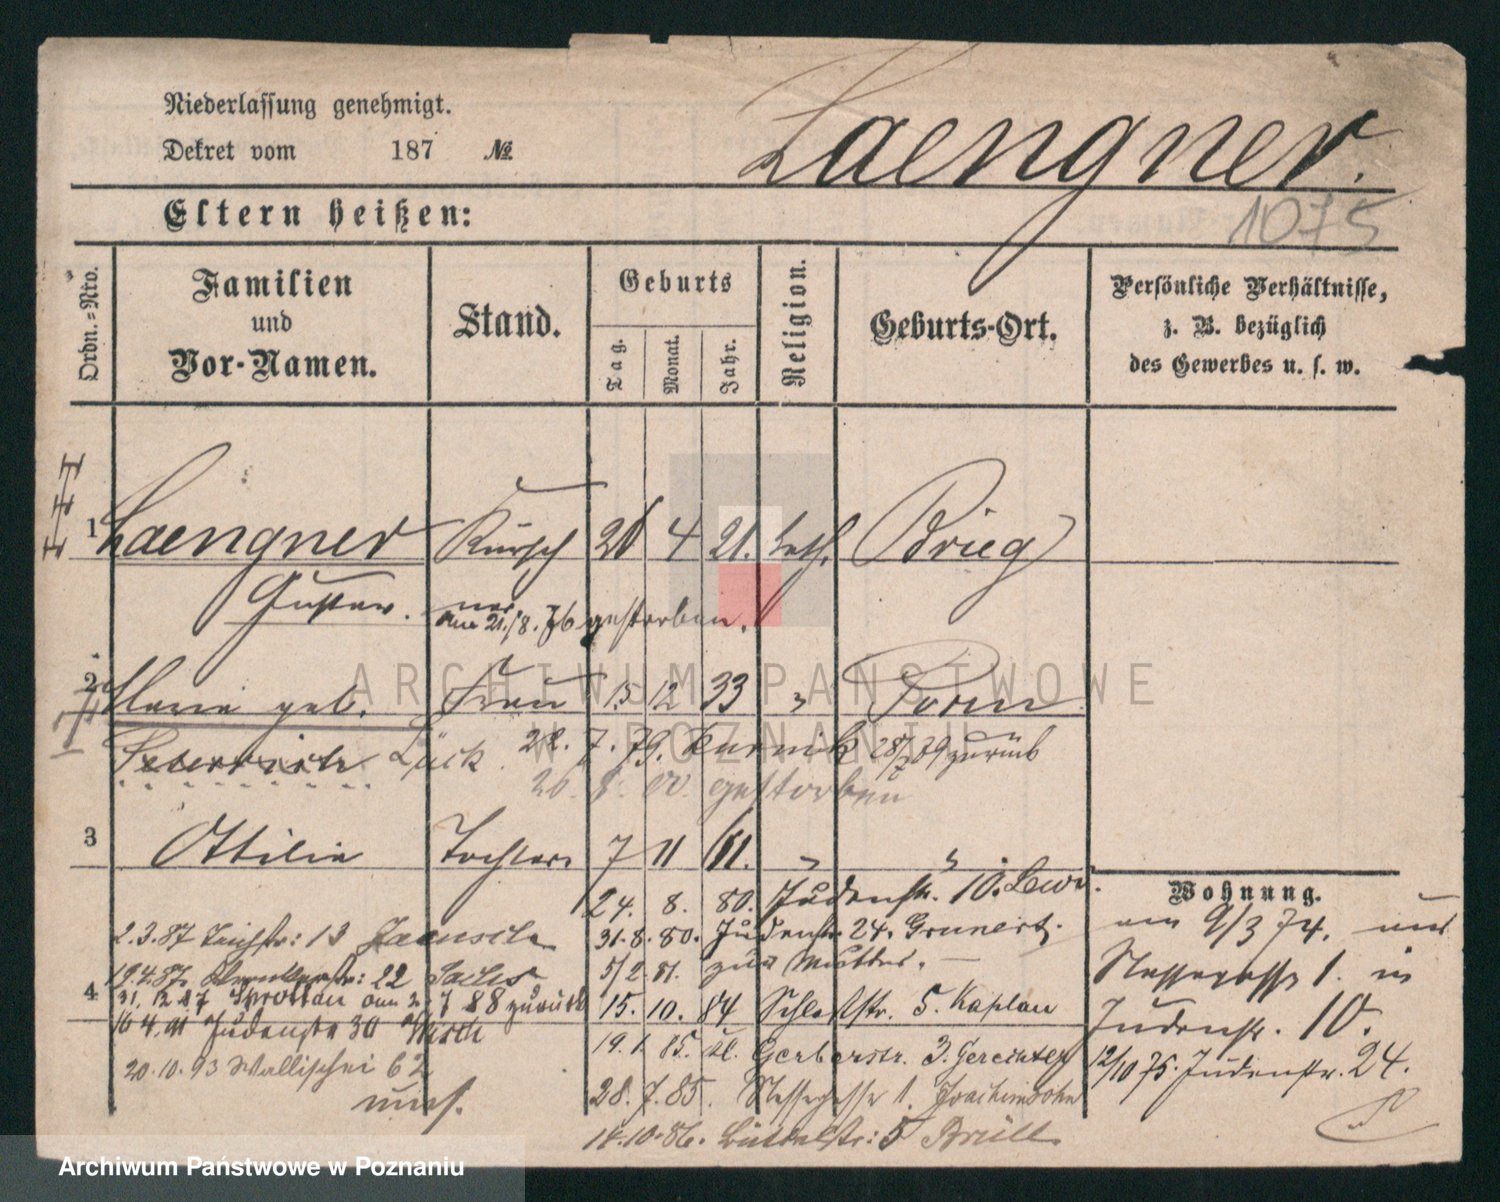 Niederlassung genehmigt.
Dekret vom 187 №
Laengner.
1075
Eltern heißen:
Ordn.=Nro.
Familien
und
Vor-Namen.
Stand.
Geburts
Tag.
Monat.
Jahr.
Religion.
Geburts-Ort.
Persönliche Verhältnisse,
z. B. bezüglich
des Gewerbes u. s. w.
1 Laengner Kürsch 4 21. Brieg
Gustav. am 21./8. 76 gestorben.
2 Maria geb. Frau 15 12 33 " Posen
Lück 22. 7. 79. Kurnik 28/7 79 zurück
gestorben
3 Ottilie Tochter 7 11 61. " "
24. 8. 80. Judenstr. 10. Lewy.
Wohnung.
2.3.87 Teichstr: 13 Jaensch
31. 8. 80. Judenstr 24. Grunert.
am 9/3 74. aus
19.4.87. 22 Sachs
5/2. 81. zur Mutter.
1. in
4 31. 12 87 Sprottau am 7 88 zurück
15. 10. 84 Schloßstr. 5. Kaplan
Judenstr. 10.
16 4. 91 Judenstr 30
19. 1. 85. Kl. Gerberstr. 3.
12/10 75. Judenstr. 24.
20. 10. 93 Wallischei 62
28. 7. 85. 1. Joachimsohn
14. 10. 86. Büttelstr: 5 Brüll
ARCHIWUM PAŃSTWOWE
W POZNANIU
Archiwum Państwowe w Poznaniu